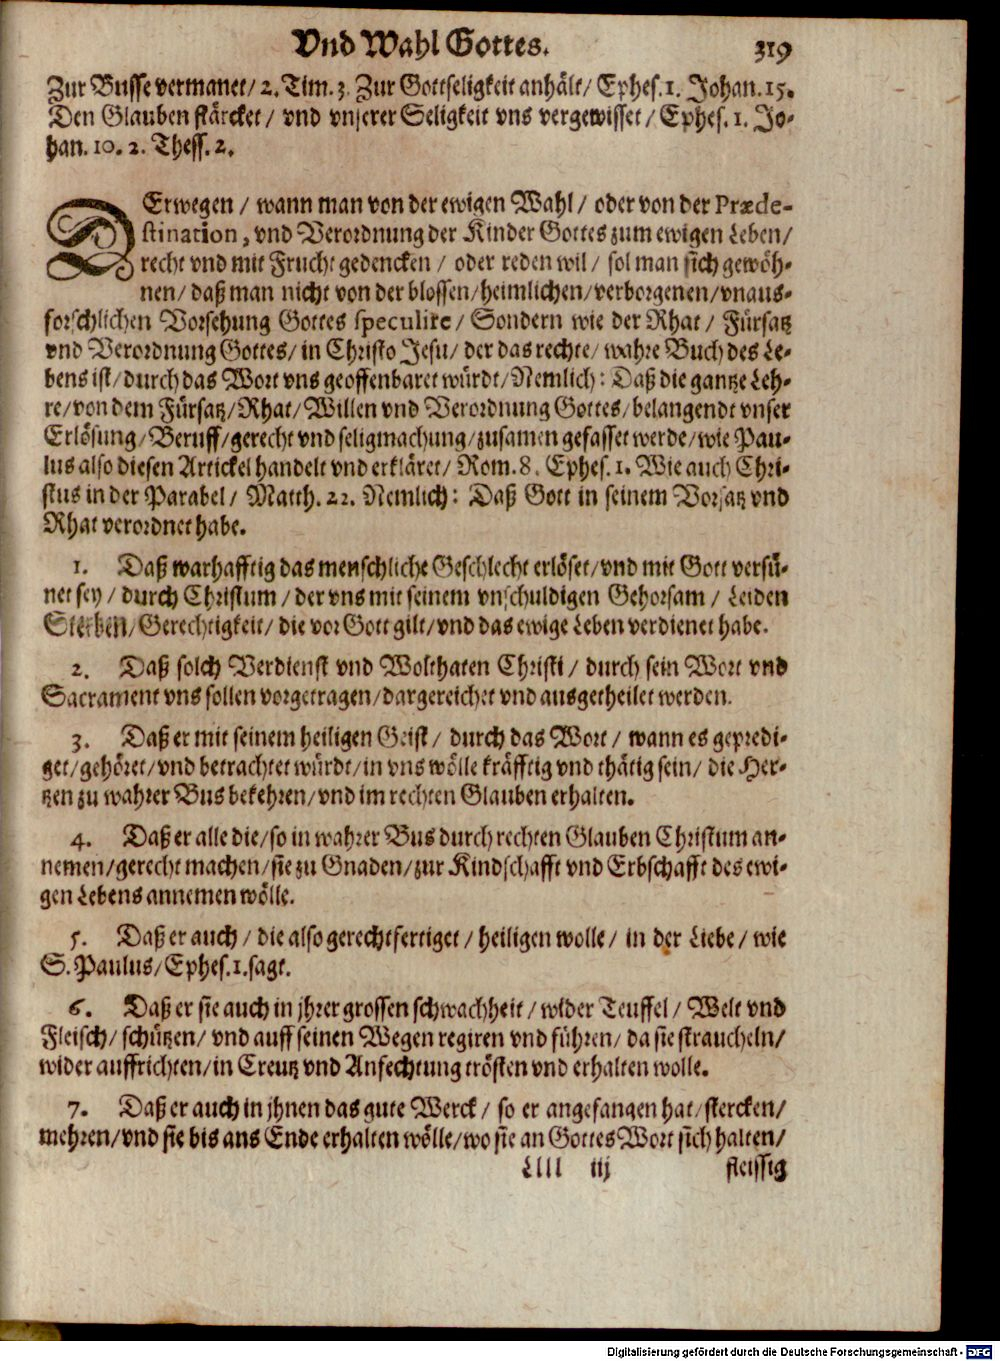 Vnd Wahl Gottes. 319
Zur Busse vermanet/ 2. Tim. 3. Zur Gottseligkeit anhält/ Ephes. 1. Johan. 15.
Den Glauben stärcket / vnd vnserer Seligkeit vns vergewisset / Ephes. 1. Jo-
han. 10. 2. Thess. 2.
DErwegen / wann man von der ewigen Wahl / oder von der Præde-
stination, vnd Verordnung der Kinder Gottes zum ewigen Leben/
recht vnd mit Frucht gedencken / oder reden wil / sol man sich gewöh-
nen/ daß man nicht von der blossen/heimlichen/verborgenen/vnaus-
forschlichen Vorsehung Gottes speculire/ Sondern wie der Rhat / Fürsatz
vnd Verordnung Gottes/ in Christo Jesu/ der das rechte/ wahre Buch des Le-
bens ist/ durch das Wort vns geoffenbaret würdt/Nemlich: Daß die gantze Leh-
re/von dem Fürsatz/Rhat/Willen vnd Verordnung Gottes/belangendt vnser
Erlösung/Beruff/gerecht vnd seligmachung/zusamen gefasset werde/wie Pau-
lus also diesen Artickel handelt vnd erkläret/ Rom. 8. Ephes. 1. Wie auch Chri-
stus in der Parabel/ Matth. 22. Nemlich: Daß Gott in seinem Vorsatz vnd
Rhat verordnet habe.
1. Daß warhafftig das menschliche Geschlecht erlöset/vnd mit Gott versü-
net sey / durch Christum / der vns mit seinem vnschuldigen Gehorsam / Leiden
Sterben/Gerechtigkeit/ die vor Gott gilt/vnd das ewige Leben verdienet habe.
2. Daß solch Verdienst vnd Wolthaten Christi / durch sein Wort vnd
Sacrament vns sollen vorgetragen/dargereichet vnd ausgetheilet werden.
3. Daß er mit seinem heiligen Geist / durch das Wort / wann es gepredi-
get/gehöret/vnd betrachtet würdt/in vns wölle kräfftig vnd thätig sein/ die Her-
tzen zu wahrer Bus bekehren/vnd im rechten Glauben erhalten.
4. Daß er alle die/so in wahrer Bus durch rechten Glauben Christum an-
nemen/gerecht machen/sie zu Gnaden/zur Kindschafft vnd Erbschafft des ewi-
gen Lebens annemen wölle.
5. Daß er auch / die also gerechtfertiget / heiligen wolle / in der Liebe/ wie
S. Paulus/Ephes.1.sagt.
6. Daß er sie auch in jhrer grossen schwachheit / wider Teuffel / Welt vnd
Fleisch/ schützen/ vnd auff seinen Wegen regiren vnd führen/ da sie straucheln/
wider auffrichten/in Creutz vnd Anfechtung trösten vnd erhalten wolle.
7. Daß er auch in jhnen das gute Werck / so er angefangen hat/stercken/
mehren/vnd sie bis ans Ende erhalten wölle/wo sie an Gottes Wort sich halten/
Llll iij fleissig
Digitalisierung gefördert durch die Deutsche Forschungsgemeinschaft - DFG